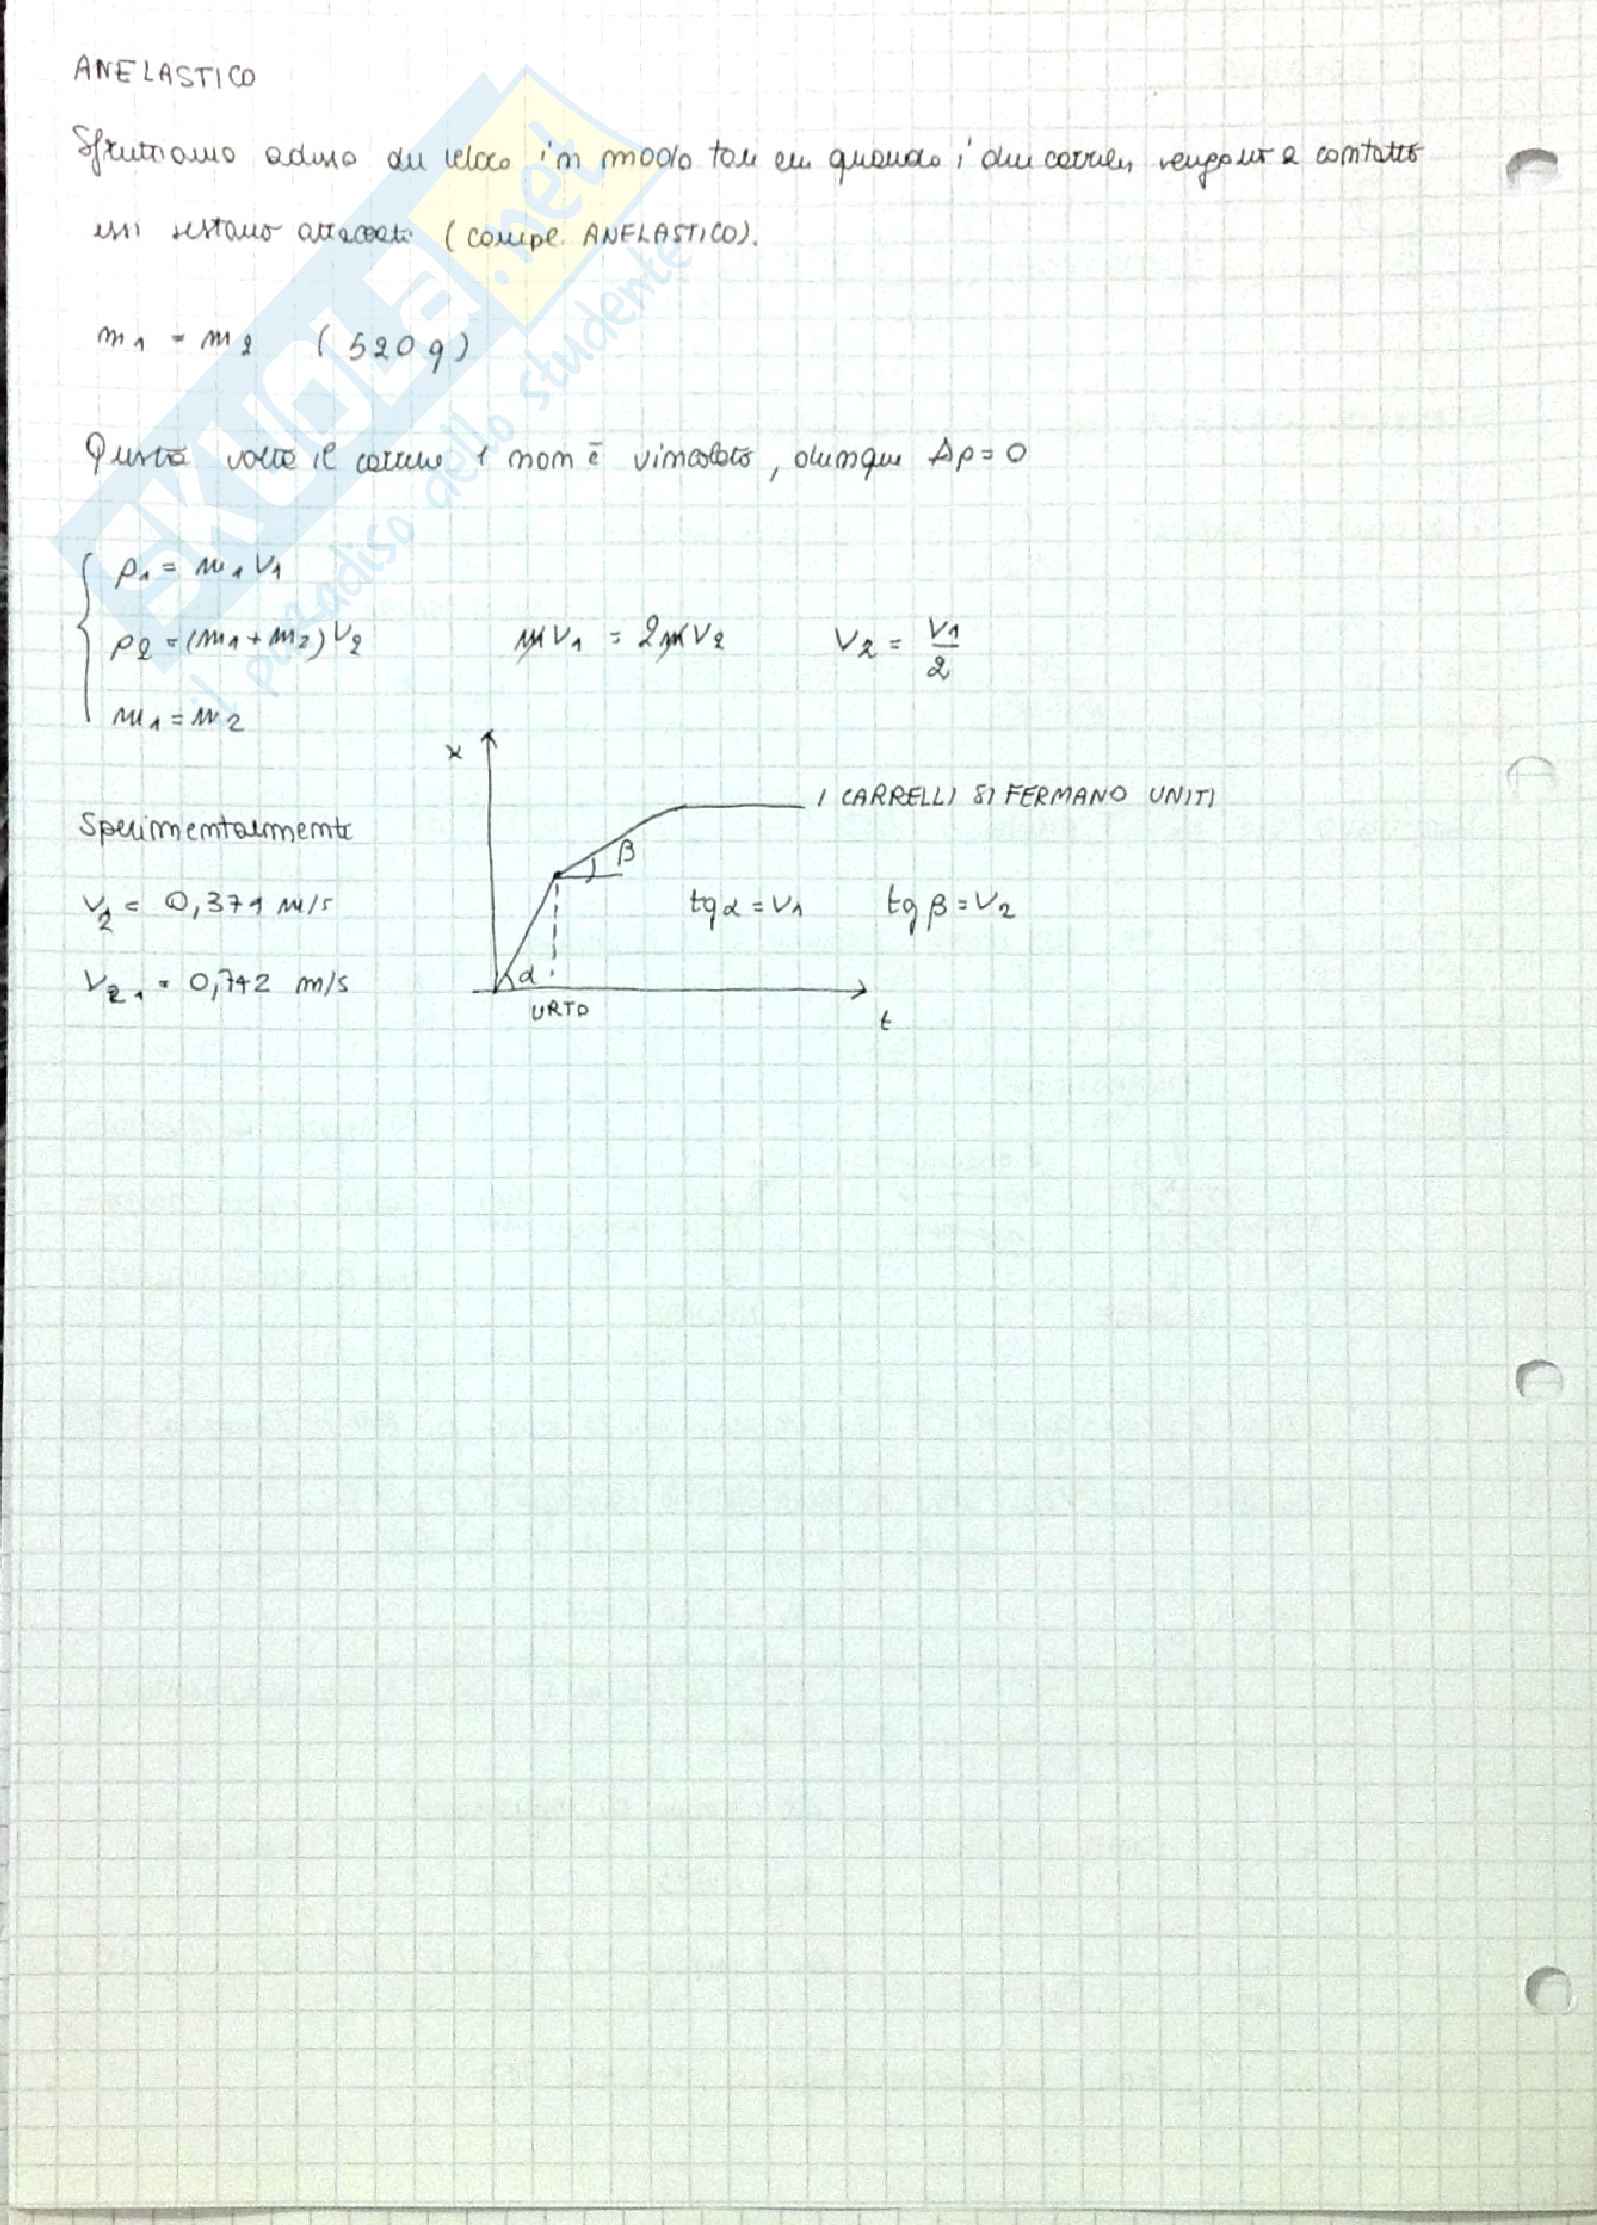 ANELASTICO
Sfruttiamo adesso del velcro in modo tale che quando i due carrelli vengono a contatto
essi restano attaccati (compl. ANELASTICO).
m1 = m2 (520 g)
Questa volta il carrello 1 non è vincolato, dunque Δp = 0
p1 = m1 v1
p2 = (m1 + m2) v2 m v1 = 2 m v2 v2 = v1/2
m1 = m2
x
I CARRELLI SI FERMANO UNITI
Sperimentalmente
β
v2 = 0,371 m/s tg α = v1 tg β = v2
α
= 0,742 m/s
URTO
t
SKUOLA.net
il paradiso dello studente